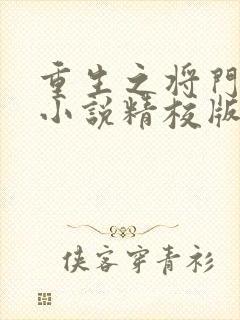 重生之将門
小説精校版
侠客穿青衫